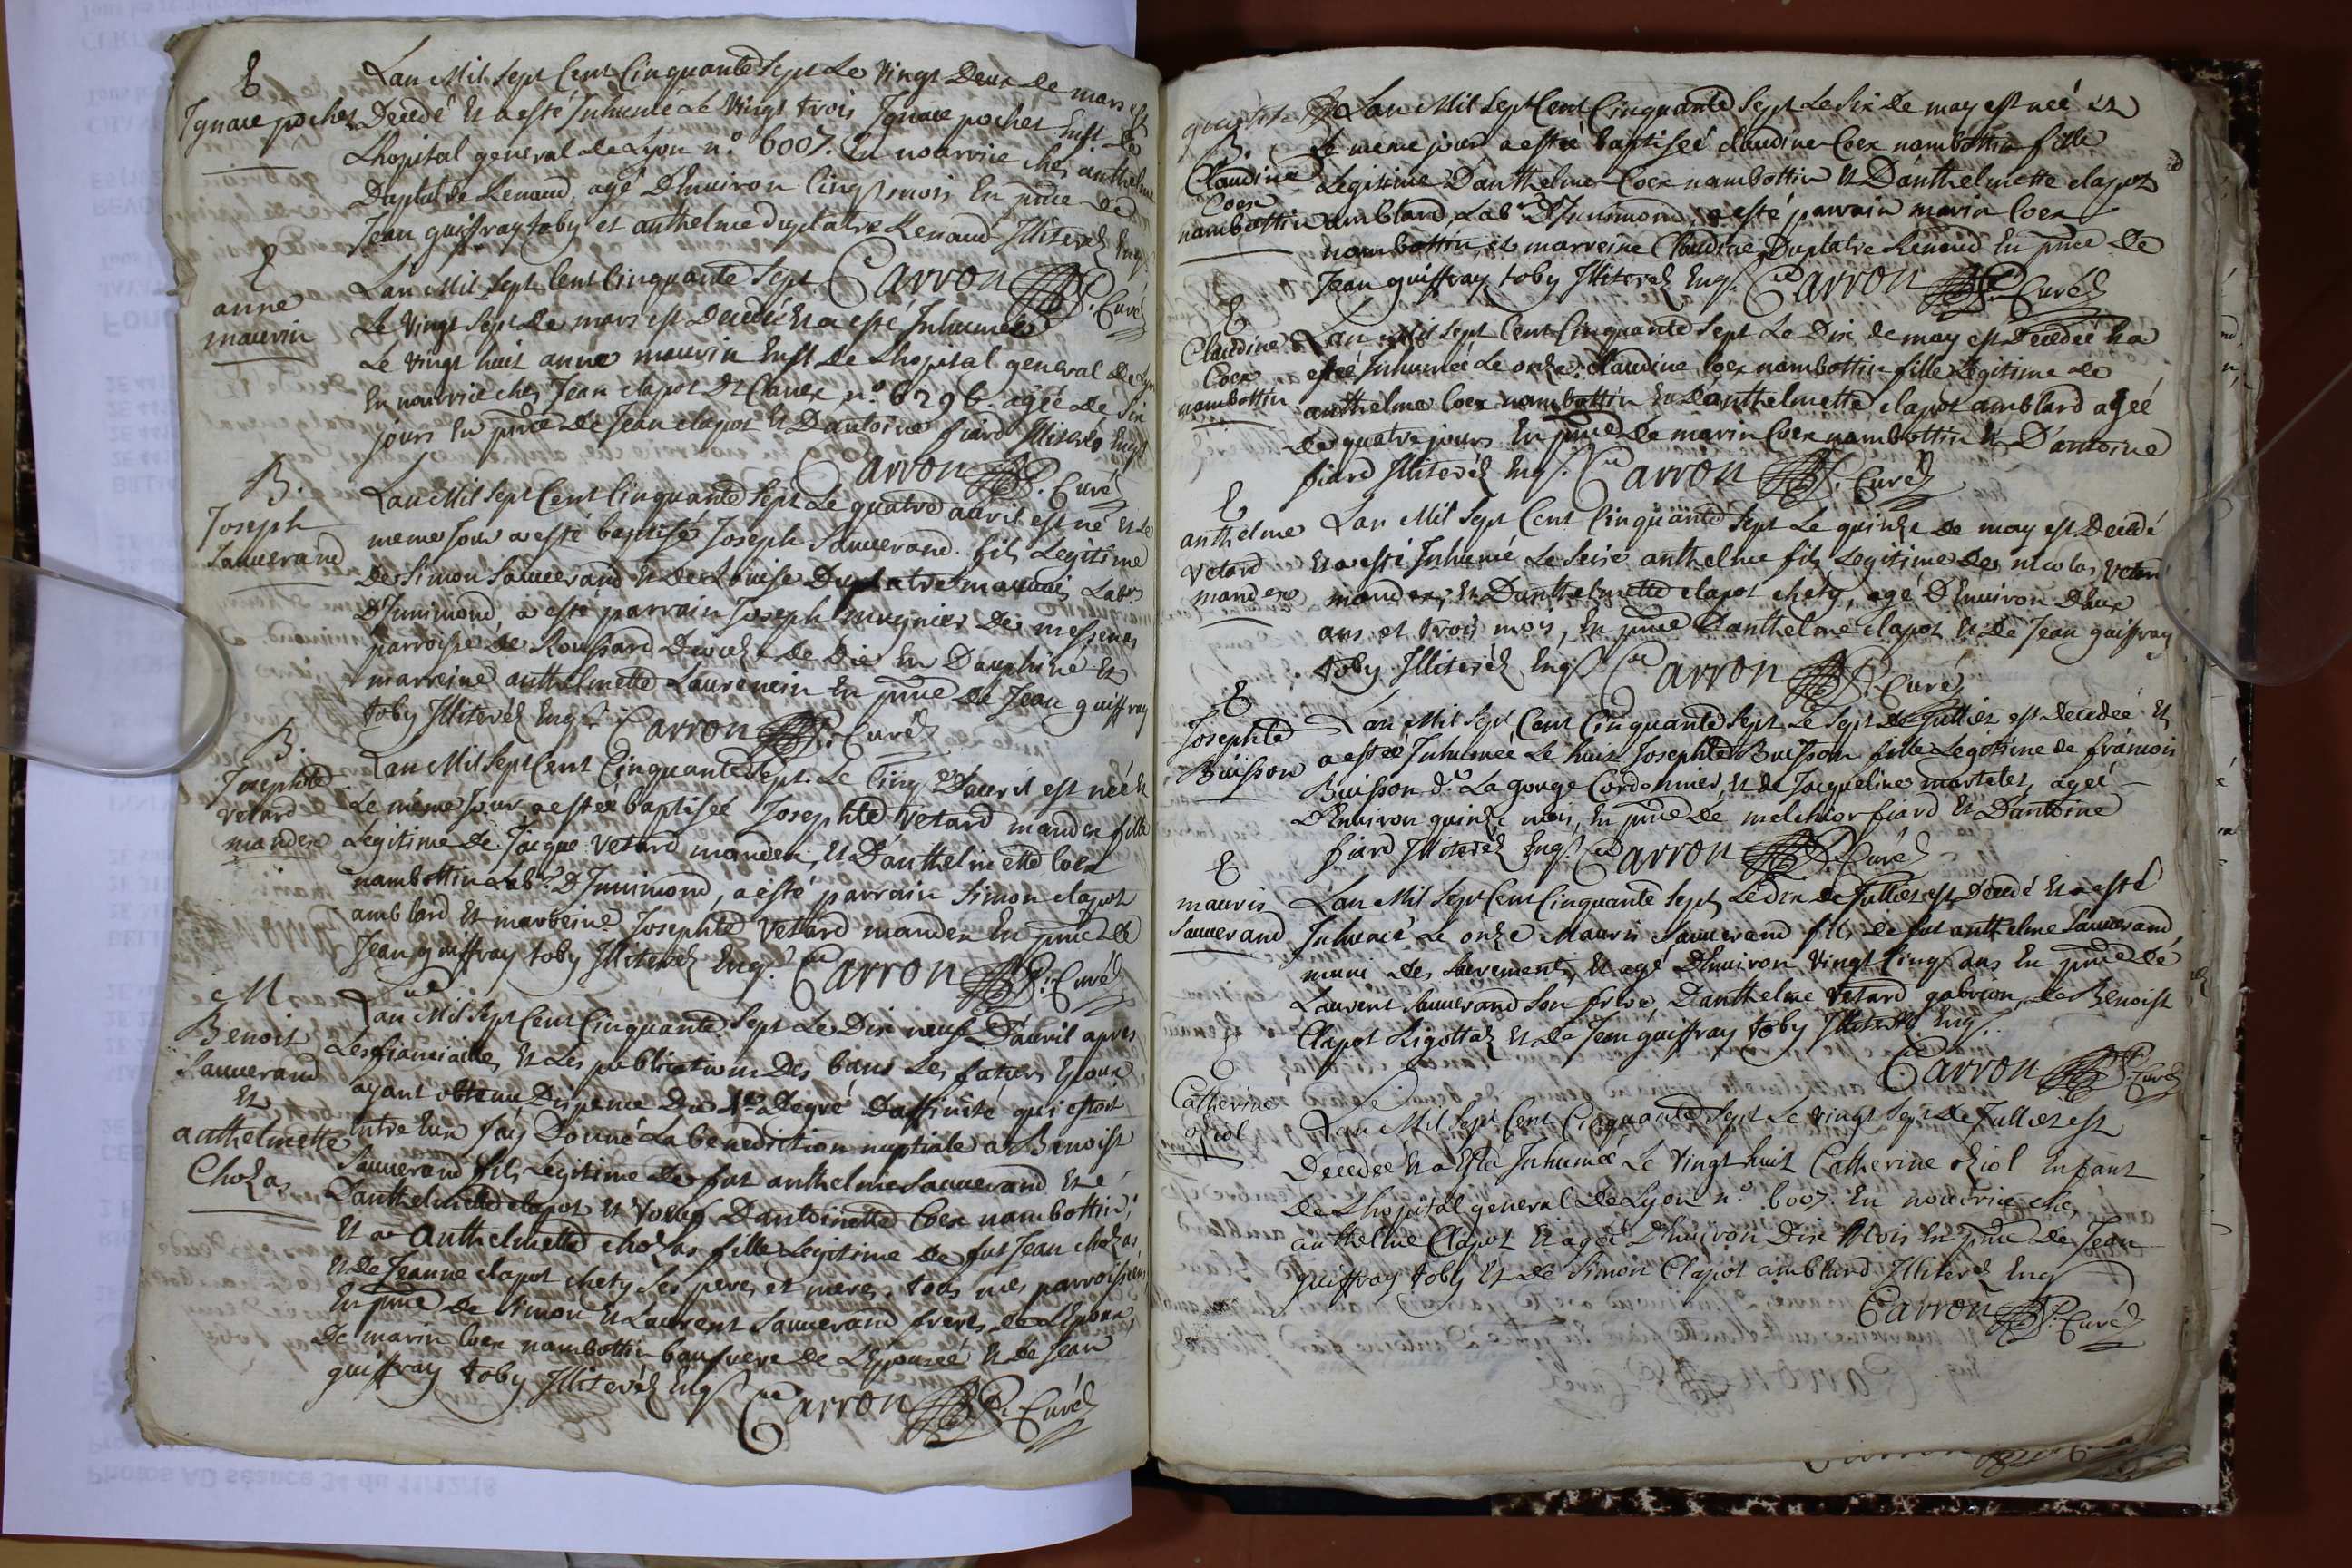 E
Ignace pochet
Lan Mil Sept Cent Cinquante Sept Le Vingt Deux de mars est
Decedé Et a esté Inhumé Le Vingt trois Ignace pochet Enft. de
Lhopital general de Lyon n.º 6007. En nourrice ches anthelme
Duplatre Renaud, agé D'Environ Cinq mois En pnce de
Jean guiffray toby et anthelme duplatre Renaud Illiterés Enqs
Carron P. Curé
E
anne
mauvin
Lan Mil Sept Cent Cinquante Sept
Le Vingt Sept De mars est Decedée Et a esté Inhumée
Le Vingt huit anne mauvin Enft de Lhopital general de Lyon
En nourrice ches Jean clapot n.º 6296 agée de Six
jours En pnce De Jean clapot Et D'antoine fiard Illiterés Enqs
Carron P. Curé
B.
Joseph
Sauverand
Lan Mil Sept Cent Cinquante Sept Le quatre avril est né Et Le
meme Jour a esté baptisé Joseph Sauverand fils Legitime
De Simon Sauverand Et de Louise Duplatre mauvais Labr.
D'Innimond, a esté parrain Joseph mugnier De messenas
parroisse de Roussard Diocese De Die En Dauphiné Et
marreine anthelmette Laurencin En pnce de Jean guiffray
toby Illiterés Enqs Carron P. Curé
B.
Josephte
Vetard
mandex
Lan Mil Sept Cent Cinquante Sept Le Cinq D'avril est née Et
Le même Jour a estée baptisée Josephte Vetard mandex fille
Legitime De Jacque Vetard mandex, Et D'anthelmette Coex
nambottin Labr. D'Innimond, a esté parrain Simon clapot
amblard Et marreine Josephte Vetard mandex En pnce De
Jean guiffray toby Illiterés Enqs. Carron P. Curé
M
Benoit
Sauverand
Et
anthelmette
Chozas
Lan Mil Sept Cent Cinquante Sept Le Dix neuf D'avril apres
Les fiancialles Et Les publications Des bans Les faturs Epoux
ayant obtenu Dispence Du 4e Degré D'affinité qui estoit
entre Eux J'ay Donné La benediction nuptiale a Benoist
Sauverand fils Legitime De fut anthelme Sauverand Et
D'anthelmette clapot Et Veuf D'antoinette Coex nambottin,
Et a anthelmette chozas fille Legitime De fut Jean chozas
Et De Jeanne clapot chety Ses peres et meres, tous mes parroissiens
En pnce De Simon Et Laurent Sauverand freres de L'Epoux,
De marin Coex nambottin baufrere De L'Epousée Et de Jean
guiffray toby Illiterés Enqs Carron P. Curé
B.
Claudine
Coex
nambottin
Lan Mil Sept Cent Cinquante Sept Le Six de may est née Et
Le même jour a estée baptisée claudine Coex nambottin fille
Legitime D'anthelme Coex nambottin Et D'anthelmette clapot
amblard Labr. D'Innimond, a esté parrain marin Coex
nambottin, et marreine Claudine Duplatre Renaud En pnce De
Jean guiffray toby Illiterés Enqs. Carron P. Curé
E
Claudine
Coex
nambottin
Lan Mil Sept Cent Cinquante Sept Le Dix de may est Decedée Et a
estée Inhumée Le onze claudine Coex nambottin fille Legitime de
anthelme Coex nambottin Et D'anthelmette clapot amblard agée
De quatre jours En pnce De marin Coex nambottin Et D'antoine
fiard Illiterés Enqs. Carron P. Curé
E
anthelme
Vetard
mandex
Lan Mil Sept Cent Cinquante Sept Le quinze de may est Decedé
Et a esté Inhumé Le Seize anthelme fils Legitime De nicolas Vetard
mandex, Et D'anthelmette clapot chety agé D'Environ Deux
ans et trois mois, En pnce D'anthelme clapot Et De Jean guiffray
toby Illiterés Enqs Carron P. Curé
E
Josephte
Buisson
Lan Mil Sept Cent Cinquante Sept Le Sept de Juillet est Decedée Et
a estée Inhumée Le huit Josephte Buisson fille Legitime de francois
Buisson dt. La gouge Cordonnier, Et de Jacqueline martelet, agée
D'Environ quinze mois, En pnce De melchior fiard Et D'antoine
fiard Illiterés Enqs. Carron P. Curé
E
mauris
Sauverand
Lan Mil Sept Cent Cinquante Sept Le dix de Juillet est Decedé Et a esté
Inhumé Le onze Mauris Sauverand fils de fut anthelme Sauverand
muni des Sacrements, Et agé D'Environ Vingt Cinq ans En pnce De
Laurent Sauverand Son frere, D'anthelme Vetard gabrion, de Benoist
Clapot Rigottaz Et de Jean guiffray toby Illiterés Enqs.
Carron P. Curé
E
Catherine
oziol
Lan Mil Sept Cent Cinquante Sept Le Vingt Sept de Juillet est
Decedée Et a Esté Inhumée Le Vingt huit Catherine oziol Enfant
De Lhopital general De Lyon n.º 6007. En nourrice ches
anthelme Clapot Et agée D'huiron Dix Mois En pnce De Jean
guiffray toby Et de Simon Clapot amblard Illiterés Enqs
Carron P. Curé